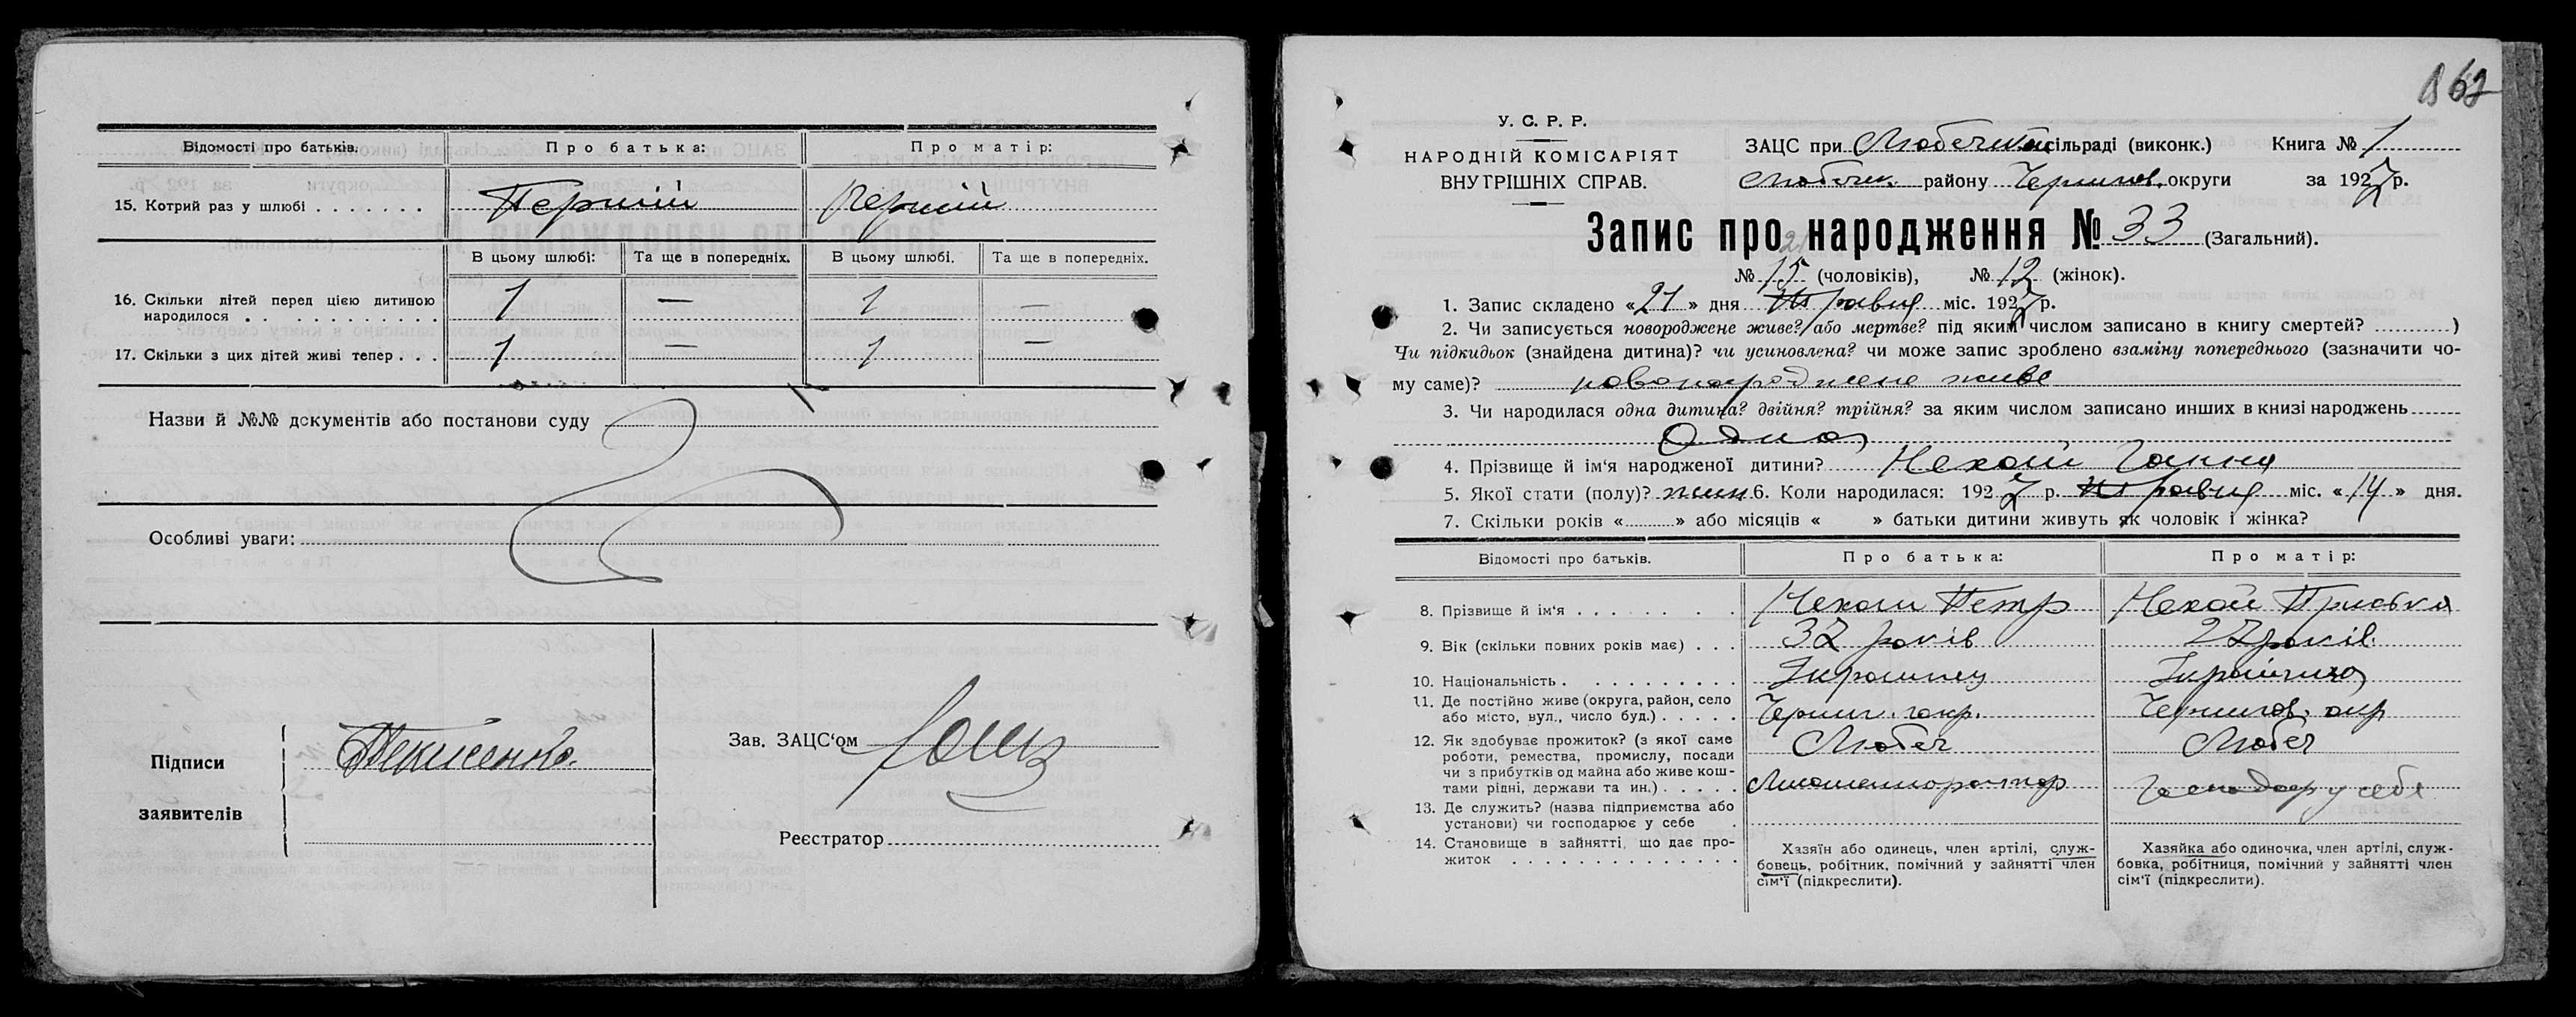 Відомості про батьків. Про батька: Про матір:
15. Котрий раз у шлюбі . . . . . . . Перший Перший
В цьому шлюбі: Та ще в попередніх. В цьому шлюбі. Та ще в попередніх.
16. Скільки дітей перед цією дитиною
народилося . . . . . . . . . . 1 — 1 —
17. Скільки з цих дітей живі тепер . . . 1 — 1 —
Назви й №№ документів або постанови суду
Особливі уваги:
Підписи
заявителів
Зав. ЗАЦС‘ом
Реєстратор
162
У. С. Р. Р.
НАРОДНІЙ КОМІСАРІЯТ
ВНУТРІШНІХ СПРАВ.
ЗАЦС при Любечській сільраді (виконк.) Книга № 1
Любечк. району Чернигов. округи за 1927 р.
Запис про народження № 33 (Загальний).
№ 15 (чоловіків), № 12 (жінок).
1. Запис складено «21» дня Травня міс. 1927 р.
2. Чи записується новороджене живе? або мертве? під яким числом записано в книгу смертей? )
Чи підкидьок (знайдена дитина)? чи усиновлена? чи може запис зроблено взаміну попереднього (зазначити чо-
му саме)? новонароджене живе
3. Чи народилася одна дитина? двійня? трійня? за яким числом записано инших в книзі народжень
Одна
4. Прізвище й ім‘я народженої дитини? Нехай Ганна
5. Якої стати (полу)? жин 6. Коли народилася: 1927 р. Травня міс. «14» дня.
7. Скільки років « » або місяців « » батьки дитини живуть як чоловік і жінка?
Відомості про батьків. Про батька: Про матір:
8. Прізвище й ім‘я . . . . . . . Нехай Петр Нехай Приська
9. Вік (скільки повних років має) . . . 32 років 27 років
10. Національність . . . . . . . . . . Українец Українка
11. Де постійно живе (округа, район, село Черниг. окр. Чернигов. окр
або місто, вул., число буд.) . . . . .
12. Як здобуває прожиток? (з якої саме Любеч Любеч
роботи, ремества, промислу, посади
чи з прибутків од майна або живе кош-
тами рідні, держави та ин.) . . . . . Господар у себе
13. Де служить? (назва підприємства або
установи) чи господарює у себе .
14. Становище в занятті, що дає про-
житок . . . . . . . . . . . . . .
Хазяїн або одинець, член артілі, служ-
бовець, робітник, помічний у занятті член
сім‘ї (підкреслити).
Хазяйка або одиночка, член артілі, служ-
бовка, робітниця, помічний у занятті член
сім‘ї (підкреслити).